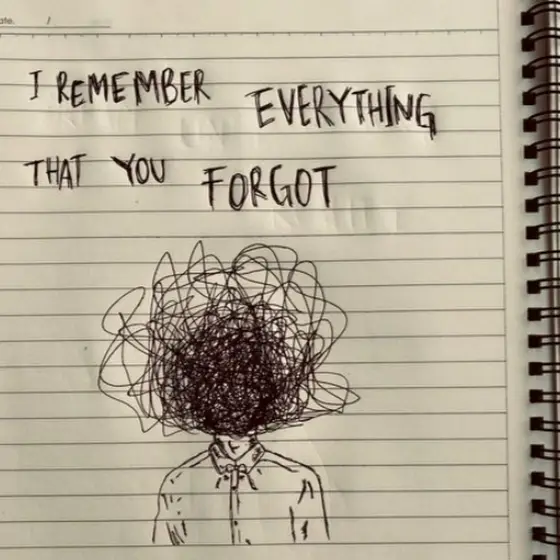 ate. /
I REMEMBER EVERYTHING
THAT YOU FORGOT